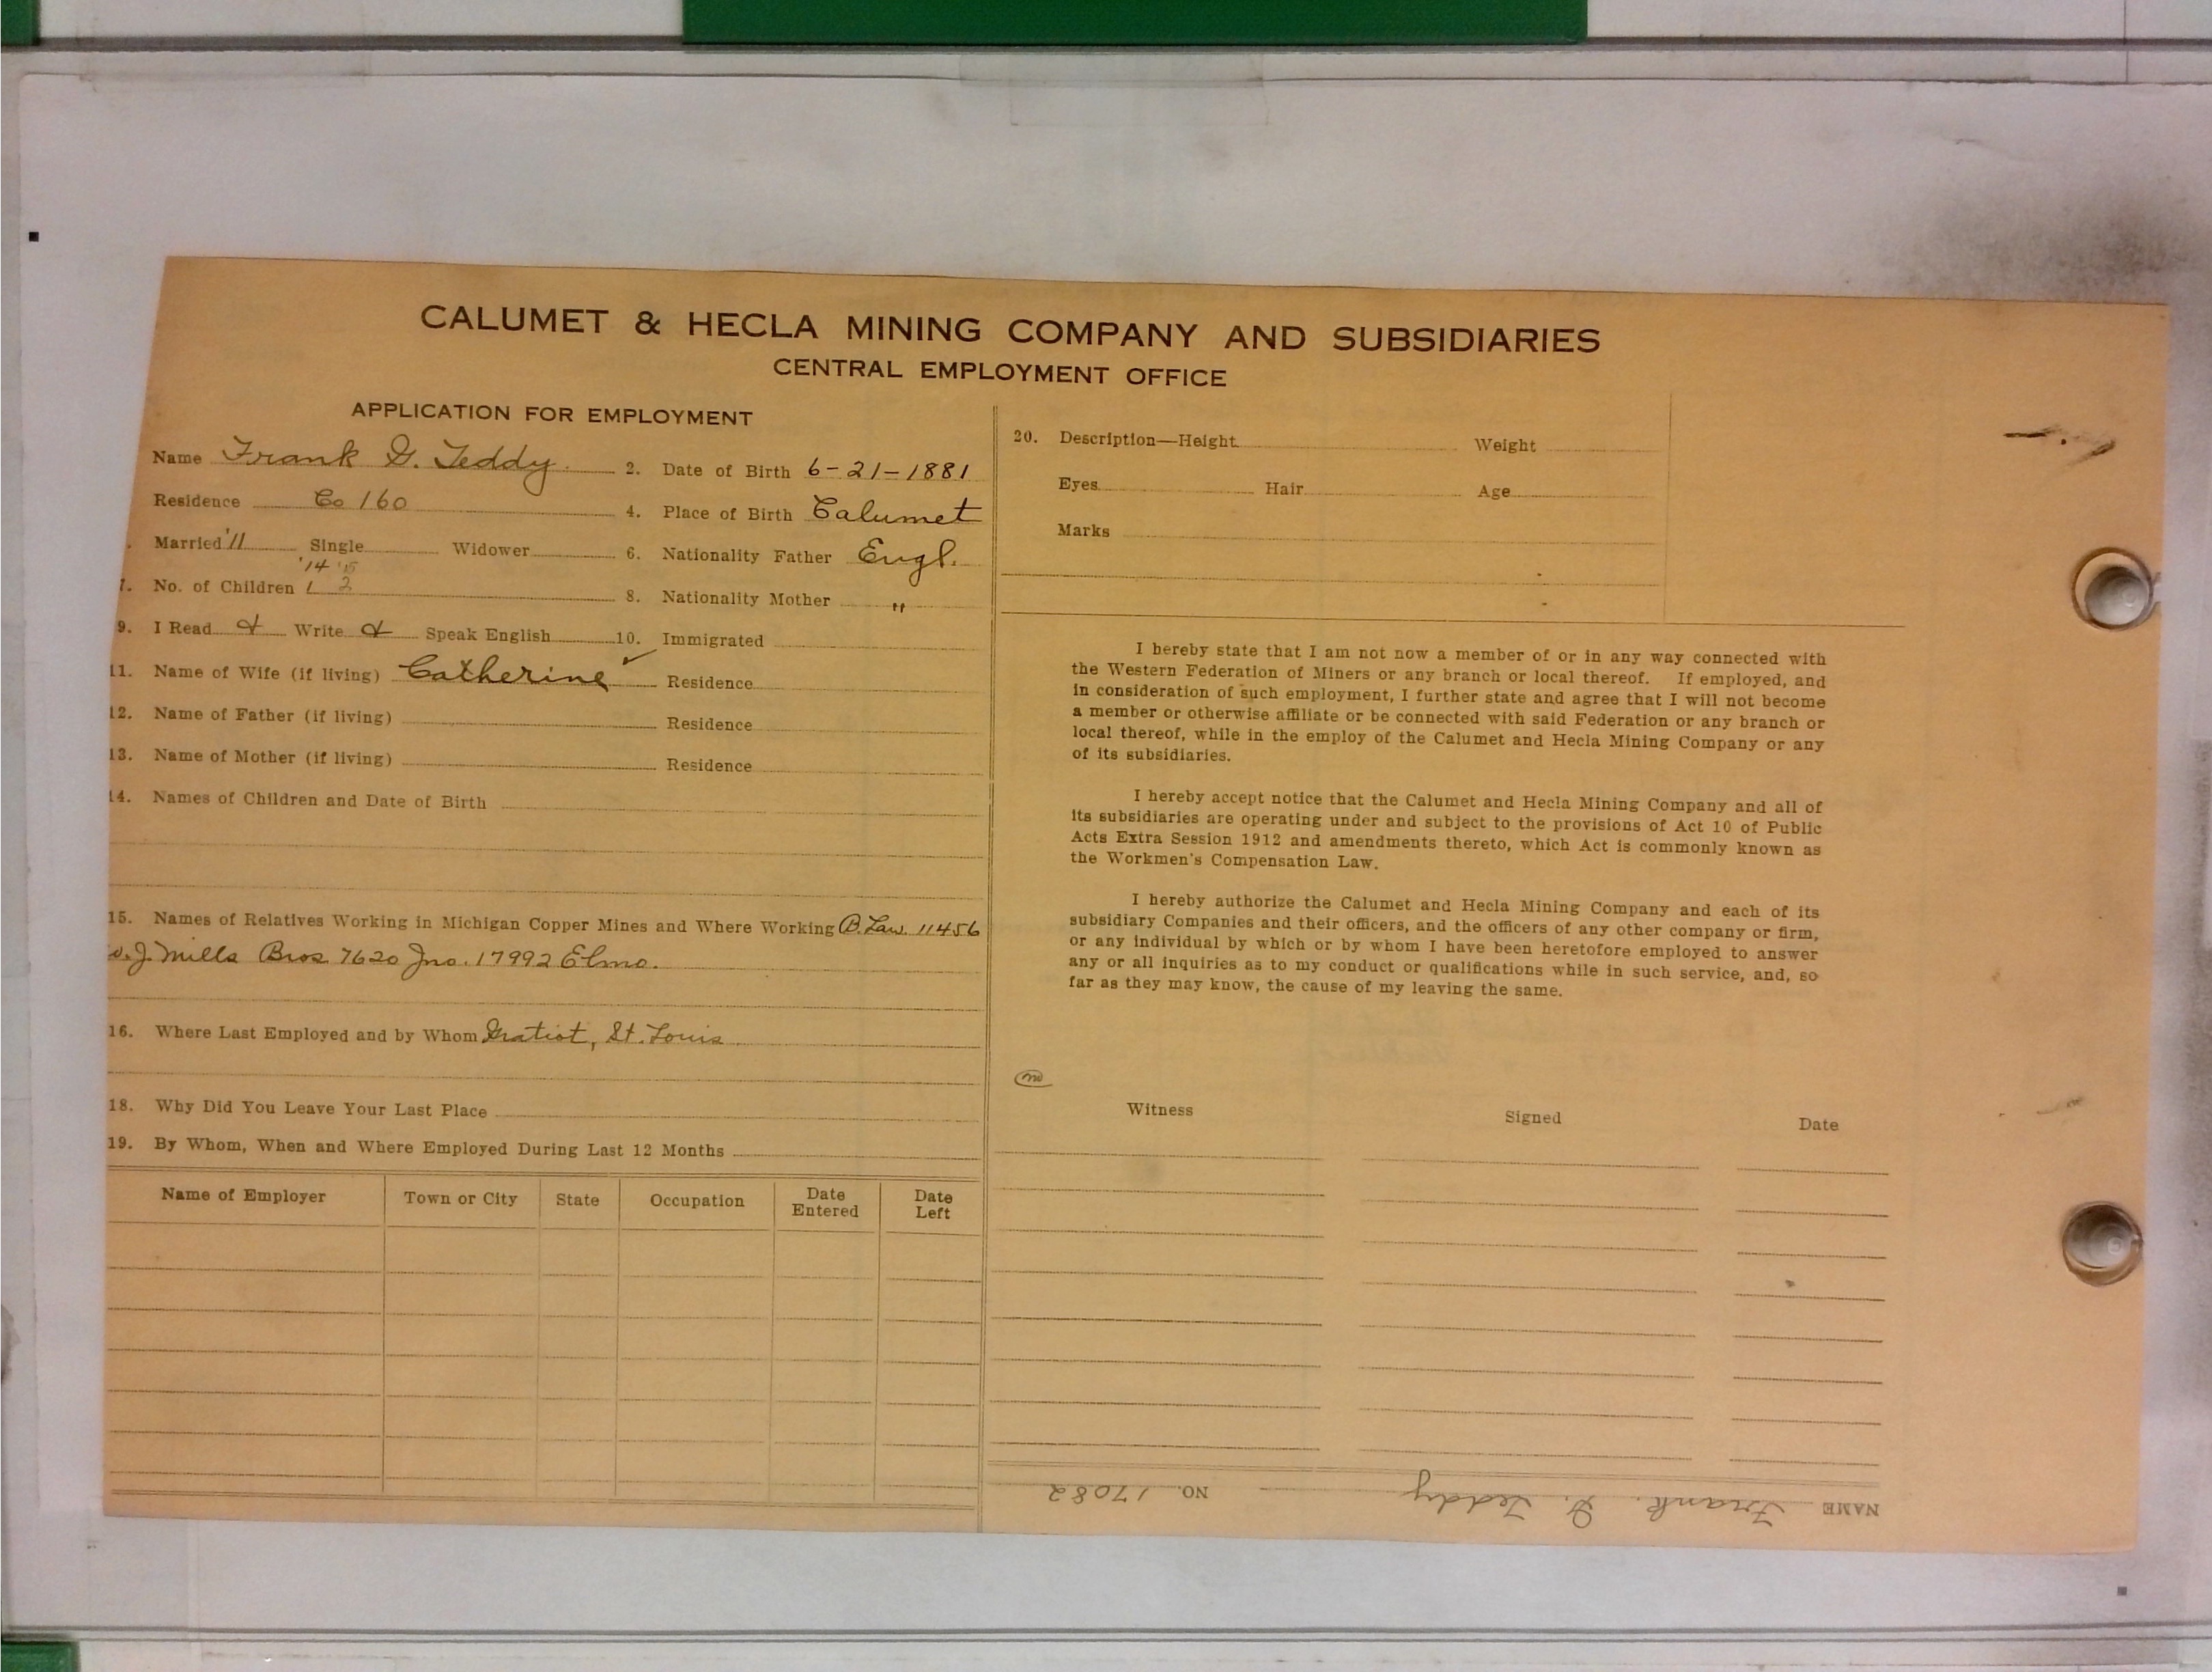 CALUMET & HECLA MINING COMPANY AND SUBSIDIARIES
CENTRAL EMPLOYMENT OFFICE
APPLICATION FOR EMPLOYMENT
Name Frank G. Teddy 2. Date of Birth 6-21-1881
Residence Co 160 4. Place of Birth Calumet
Married '11 Single Widower 6. Nationality Father Engl.
'14 '15
7. No. of Children 1 2 8. Nationality Mother "
9. I Read & Write & Speak English 10. Immigrated
11. Name of Wife (if living) Catherine Residence
12. Name of Father (if living) Residence
13. Name of Mother (if living) Residence
14. Names of Children and Date of Birth
15. Names of Relatives Working in Michigan Copper Mines and Where Working B. Law. 11456
J. Mills Bros 7620 Jno. 17992 Elmo.
16. Where Last Employed and by Whom Gratiot, St. Louis
18. Why Did You Leave Your Last Place
19. By Whom, When and Where Employed During Last 12 Months
Name of Employer Town or City State Occupation Date Entered Date Left
20. Description—Height Weight
Eyes Hair Age
Marks
I hereby state that I am not now a member of or in any way connected with
the Western Federation of Miners or any branch or local thereof. If employed, and
in consideration of such employment, I further state and agree that I will not become
a member or otherwise affiliate or be connected with said Federation or any branch or
local thereof, while in the employ of the Calumet and Hecla Mining Company or any
of its subsidiaries.
I hereby accept notice that the Calumet and Hecla Mining Company and all of
its subsidiaries are operating under and subject to the provisions of Act 10 of Public
Acts Extra Session 1912 and amendments thereto, which Act is commonly known as
the Workmen's Compensation Law.
I hereby authorize the Calumet and Hecla Mining Company and each of its
subsidiary Companies and their officers, and the officers of any other company or firm,
or any individual by which or by whom I have been heretofore employed to answer
any or all inquiries as to my conduct or qualifications while in such service, and, so
far as they may know, the cause of my leaving the same.
Witness Signed Date
NAME Frank. G. Teddy NO. 17082